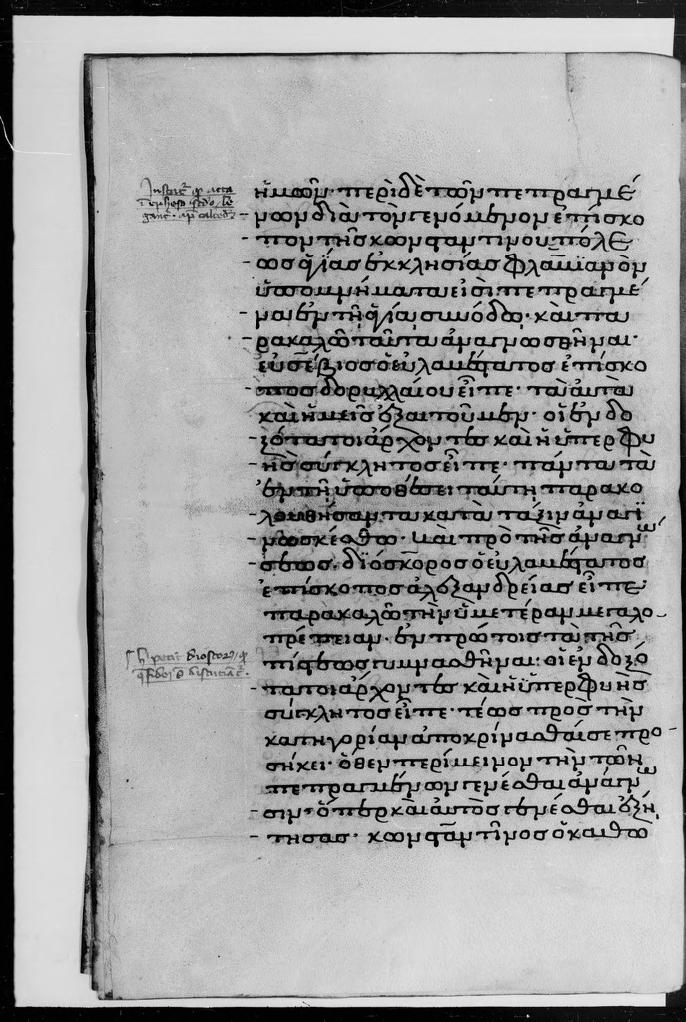 ἡμῶν· περὶ δὲ τῶν πεπραγμέ
νων διὰ τὸν γενόμενον ἐπίσκο
πον τῆς κωνσταντίνου πόλε
ως ἁγίας ἐκκλησίας φλαυϊανὸν
ὑπομνήματα εἰσὶ πεπραγμέ
να ἐν τῇ ἁγίᾳ συνόδῳ· καὶ πα
ρακαλῶ ταῦτα ἀναγνωσθῆναι·
εὐσέβιος ὁ εὐλαβέστατος ἐπίσκο
πος δορυλαίου εἶπε· τὰ αὐτὰ
καὶ ἡμεῖς ἀξιοῦμεν· οἱ ἐνδο
ξότατοι ἄρχοντες καὶ ἡ ὑπερφυ
ὴς σύγκλητος εἶπε· πάντα τὰ
ἐν τῇ ὑποθέσει ταύτῃ παρακο
λουθήσαντα κατὰ τάξιν ἀναγι
νωσκέσθω· καὶ πρὸ τῆς ἀναγνώ
σεως· διόσκορος ὁ εὐλαβέστατος
ἐπίσκοπος ἀλεξανδρείας εἶπε
παρακαλῶ τὴν ὑμετέραν μεγαλο
πρέπειαν· ἐν πρώτοις τὰ τῆς
πίστεως γυμνασθῆναι· οἱ ἐνδοξό
τατοι ἄρχοντες καὶ ἡ ὑπερφυὴς
σύγκλητος εἶπε· τέως πρὸς τὴν
κατηγορίαν ἀποκρίνασθαί σε προ
σήκει· ὅθεν περίμεινον τὴν τῶν
πεπραγμένων γενέσθαι ἀνάγνω
σιν· ὅπερ καὶ αὐτὸς γενέσθαι ἐζή
τησας· κωνσταντῖνος ὁ καθω